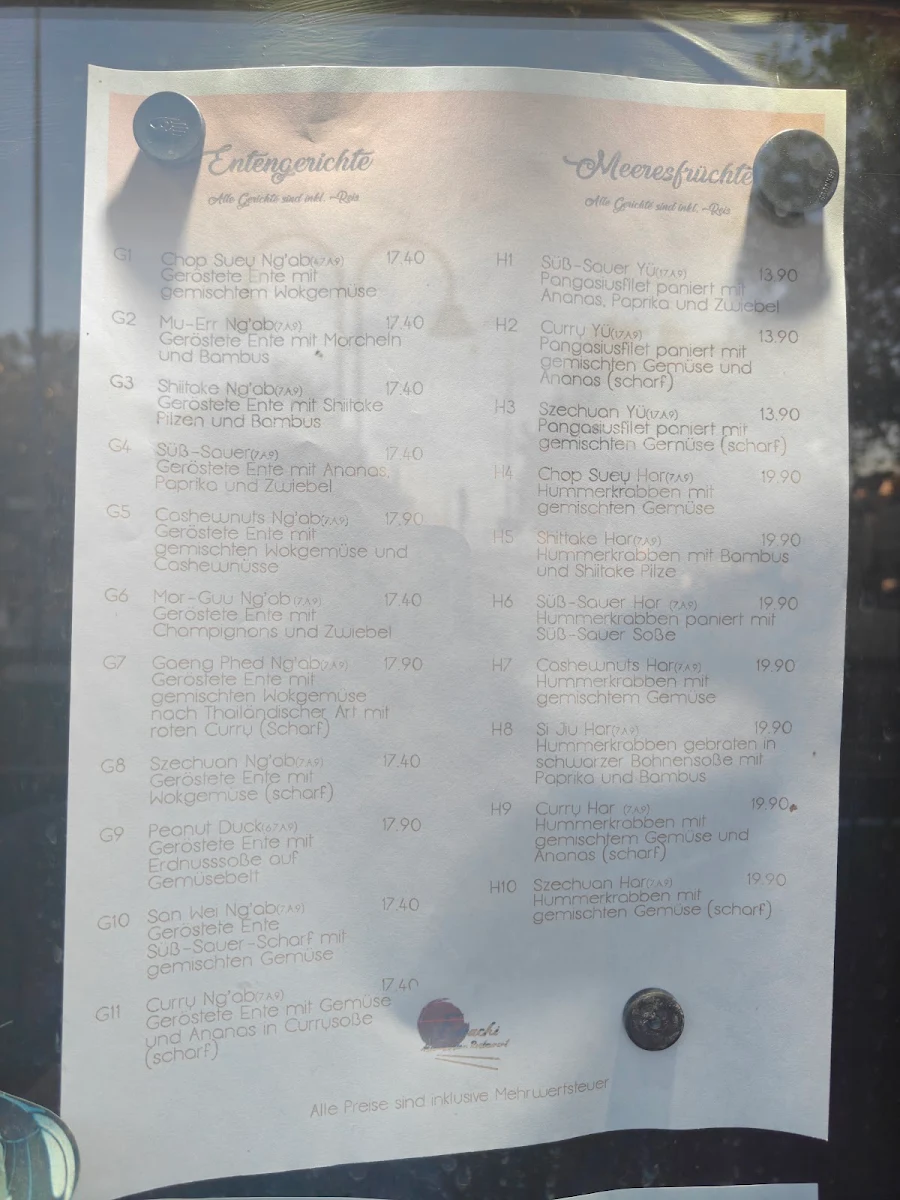 Entengerichte
Alle Gerichte sind inkl. Reis
G1 Chop Suey Ng'ab(67A9) 17.40
Geröstete Ente mit
gemischtem Wokgemüse
G2 Mu-Err Ng'ab(7A9) 17.40
Geröstete Ente mit Morcheln
und Bambus
G3 Shiitake Ng'ab(7A9) 17.40
Geröstete Ente mit Shiitake
Pilzen und Bambus
G4 Süß-Sauer(7A9) 17.40
Geröstete Ente mit Ananas,
Paprika und Zwiebel
G5 Cashewnuts Ng'ab(7A9) 17.90
Geröstete Ente mit
gemischten Wokgemüse und
Cashewnüsse
G6 Mor-Guu Ng'ab (7A9) 17.40
Geröstete Ente mit
Champignons und Zwiebel
G7 Gaeng Phed Ng'ab(7A9) 17.90
Geröstete Ente mit
gemischten Wokgemüse
nach Thailändischer Art mit
roten Curry (Scharf)
G8 Szechuan Ng'ab(7A9) 17.40
Geröstete Ente mit
Wokgemüse (scharf)
G9 Peanut Duck(67A9) 17.90
Geröstete Ente mit
Erdnusssoße auf
Gemüsebelt
G10 San Wei Ng'ab(7A9) 17.40
Geröstete Ente
Süß-Sauer-Scharf mit
gemischten Gemüse
G11 Curry Ng'ab(7A9) 17.40
Geröstete Ente mit Gemüse
und Ananas in Currysoße
(scharf)
Meeresfrüchte
Alle Gerichte sind inkl. Reis
H1 Süß-Sauer Yü(17A9) 13.90
Pangasiusfilet paniert mit
Ananas, Paprika und Zwiebel
H2 Curry Yü(17A9) 13.90
Pangasiusfilet paniert mit
gemischten Gemüse und
Ananas (scharf)
H3 Szechuan Yü(17A9) 13.90
Pangasiusfilet paniert mit
gemischten Gemüse (scharf)
H4 Chop Suey Har(7A9) 19.90
Hummerkrabben mit
gemischten Gemüse
H5 Shittake Har(7A9) 19.90
Hummerkrabben mit Bambus
und Shiitake Pilze
H6 Süß-Sauer Har (7A9) 19.90
Hummerkrabben paniert mit
Süß-Sauer Soße
H7 Cashewnuts Har(7A9) 19.90
Hummerkrabben mit
gemischtem Gemüse
H8 Si Jiu Har(7A9) 19.90
Hummerkrabben gebraten in
schwarzer Bohnensoße mit
Paprika und Bambus
H9 Curry Har (7A9) 19.90
Hummerkrabben mit
gemischtem Gemüse und
Ananas (scharf)
H10 Szechuan Har(7A9) 19.90
Hummerkrabben mit
gemischten Gemüse (scharf)
Alle Preise sind inklusive Mehrwertsteuer